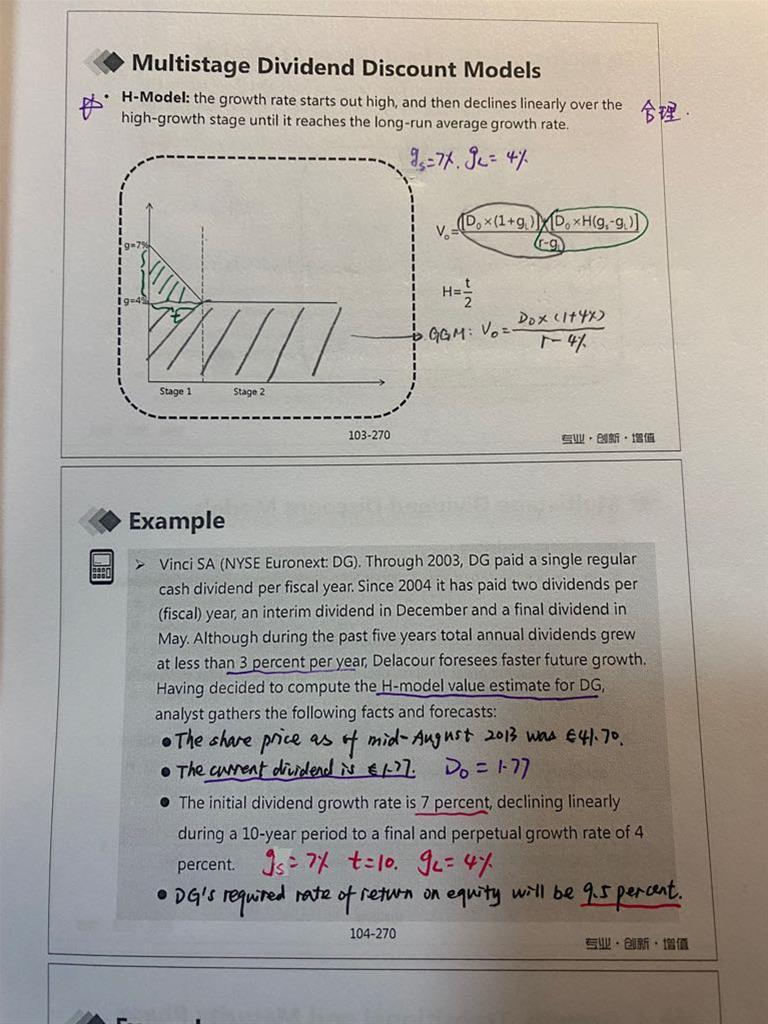 Multistage Dividend Discount Models
• H-Model: the growth rate starts out high, and then declines linearly over the
high-growth stage until it reaches the long-run average growth rate.
合理.
gs=7%. gL=4%
V₀=[D₀×(1+gL)]+[D₀×H(gs-gL)]
r-gL
g=7%
g=4%
t
H=t/2
GGM: V₀= D₀×(1+4%)
r-4%
Stage 1 Stage 2
103-270
专业·创新·增值
Example
➢ Vinci SA (NYSE Euronext: DG). Through 2003, DG paid a single regular
cash dividend per fiscal year. Since 2004 it has paid two dividends per
(fiscal) year, an interim dividend in December and a final dividend in
May. Although during the past five years total annual dividends grew
at less than 3 percent per year, Delacour foresees faster future growth.
Having decided to compute the H-model value estimate for DG,
analyst gathers the following facts and forecasts:
• The share price as of mid-August 2013 was €41.70.
• The current dividend is €1.77. D₀=1.77
• The initial dividend growth rate is 7 percent, declining linearly
during a 10-year period to a final and perpetual growth rate of 4
percent. gs=7% t=10. gL=4%
• DG's required rate of return on equity will be 9.5 percent.
104-270
专业·创新·增值